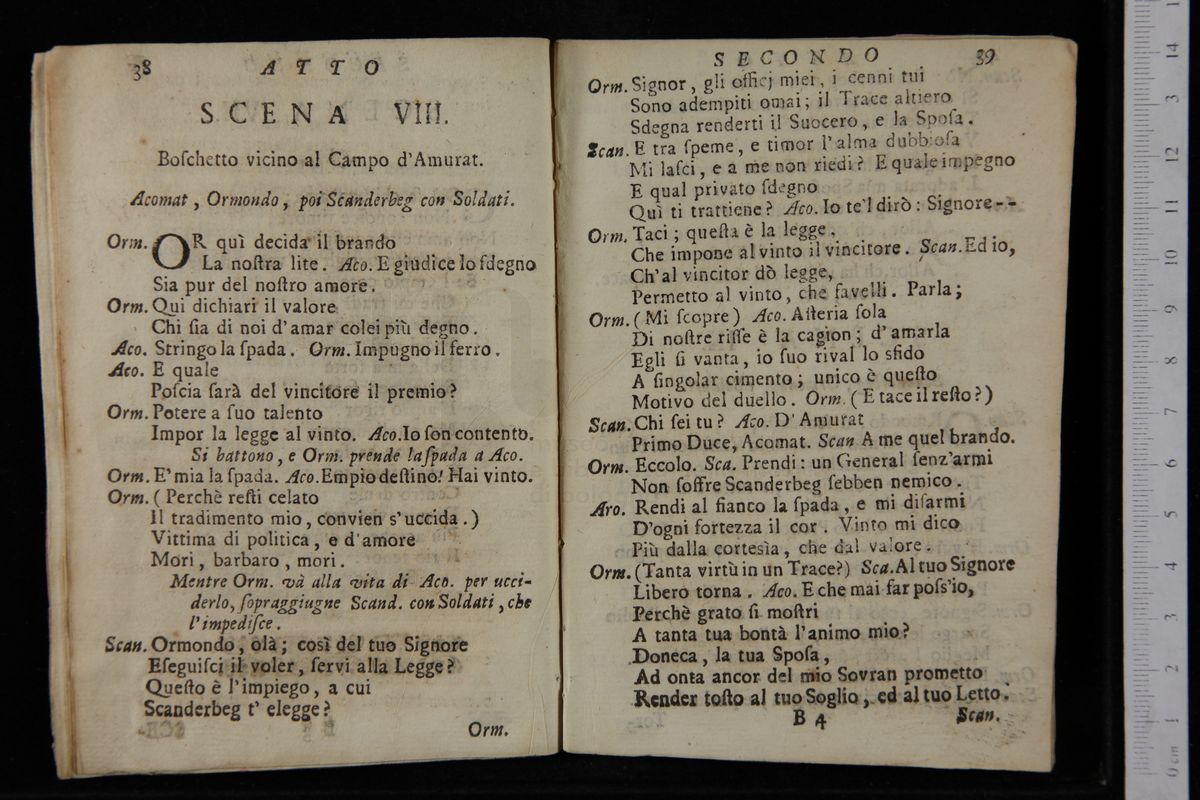 38 ATTO
SCENA VIII.
Boſchetto vicino al Campo d'Amurat.
Acomat, Ormondo, poi Scanderbeg con Soldati.
Orm. OR quì decida il brando
La noſtra lite. Aco. E giudice lo ſdegno
Sia pur del noſtro amore.
Orm. Qui dichiari il valore
Chi ſia di noi d'amar colei più degno.
Aco. Stringo la ſpada. Orm. Impugno il ferro.
Aco. E quale
Poſcia ſarà del vincitore il premio?
Orm. Potere a ſuo talento
Impor la legge al vinto. Aco. Io ſon contento.
Si battono, e Orm. prende la ſpada a Aco.
Orm. E' mia la ſpada. Aco. Empio deſtino! Hai vinto.
Orm. (Perchè reſti celato
Il tradimento mio, convien s'uccida.)
Vittima di politica, e d'amore
Mori, barbaro, mori.
Mentre Orm. và alla vita di Aco. per ucci-
derlo, ſopraggiugne Scand. con Soldati, che
l'impediſce.
Scan. Ormondo, olà; così del tuo Signore
Eſeguiſci il voler, ſervi alla Legge?
Queſto è l'impiego, a cui
Scanderbeg t' elegge?
Orm.
SECONDO 39
Orm. Signor, gli officj miei, i cenni tui
Sono adempiti omai; il Trace altiero
Sdegna renderti il Suocero, e la Spoſa.
Scan. E tra ſpeme, e timor l'alma dubbioſa
Mi laſci, e a me non riedi? E quale impegno
E qual privato ſdegno
Quì ti trattiene? Aco. Io te'l dirò: Signore--
Orm. Taci; queſta è la legge,
Che impone al vinto il vincitore. Scan. Ed io,
Ch'al vincitor dò legge,
Permetto al vinto, che favelli. Parla;
Orm. (Mi ſcopre) Aco. Aſteria ſola
Di noſtre riſſe è la cagion; d'amarla
Egli ſi vanta, io ſuo rival lo sfido
A ſingolar cimento; unico è queſto
Motivo del duello. Orm. (E tace il reſto?)
Scan. Chi ſei tu? Aco. D'Amurat
Primo Duce, Acomat. Scan A me quel brando.
Orm. Eccolo. Sca. Prendi: un General ſenz'armi
Non ſoffre Scanderbeg ſebben nemico.
Aro. Rendi al fianco la ſpada, e mi diſarmi
D'ogni fortezza il cor. Vinto mi dico
Più dalla corteſìa, che dal valore.
Orm. (Tanta virtù in un Trace?) Sca. Al tuo Signore
Libero torna. Aco. E che mai far poſs'io,
Perchè grato ſi moſtri
A tanta tua bontà l'animo mio?
Doneca, la tua Spoſa,
Ad onta ancor del mio Sovran prometto
Render toſto al tuo Soglio, ed al tuo Letto.
B 4 Scan.